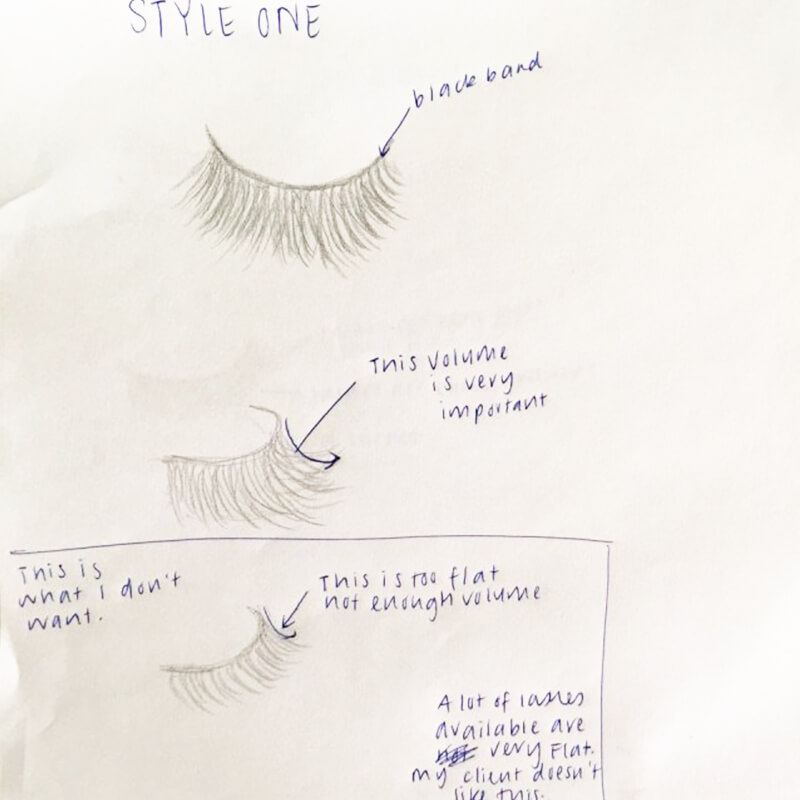 STYLE ONE
black band
This volume
is very
important
This is
what I don't
want.
This is too flat
not enough volume
A lot of lashes
available are
very flat.
my client doesn't
like this.